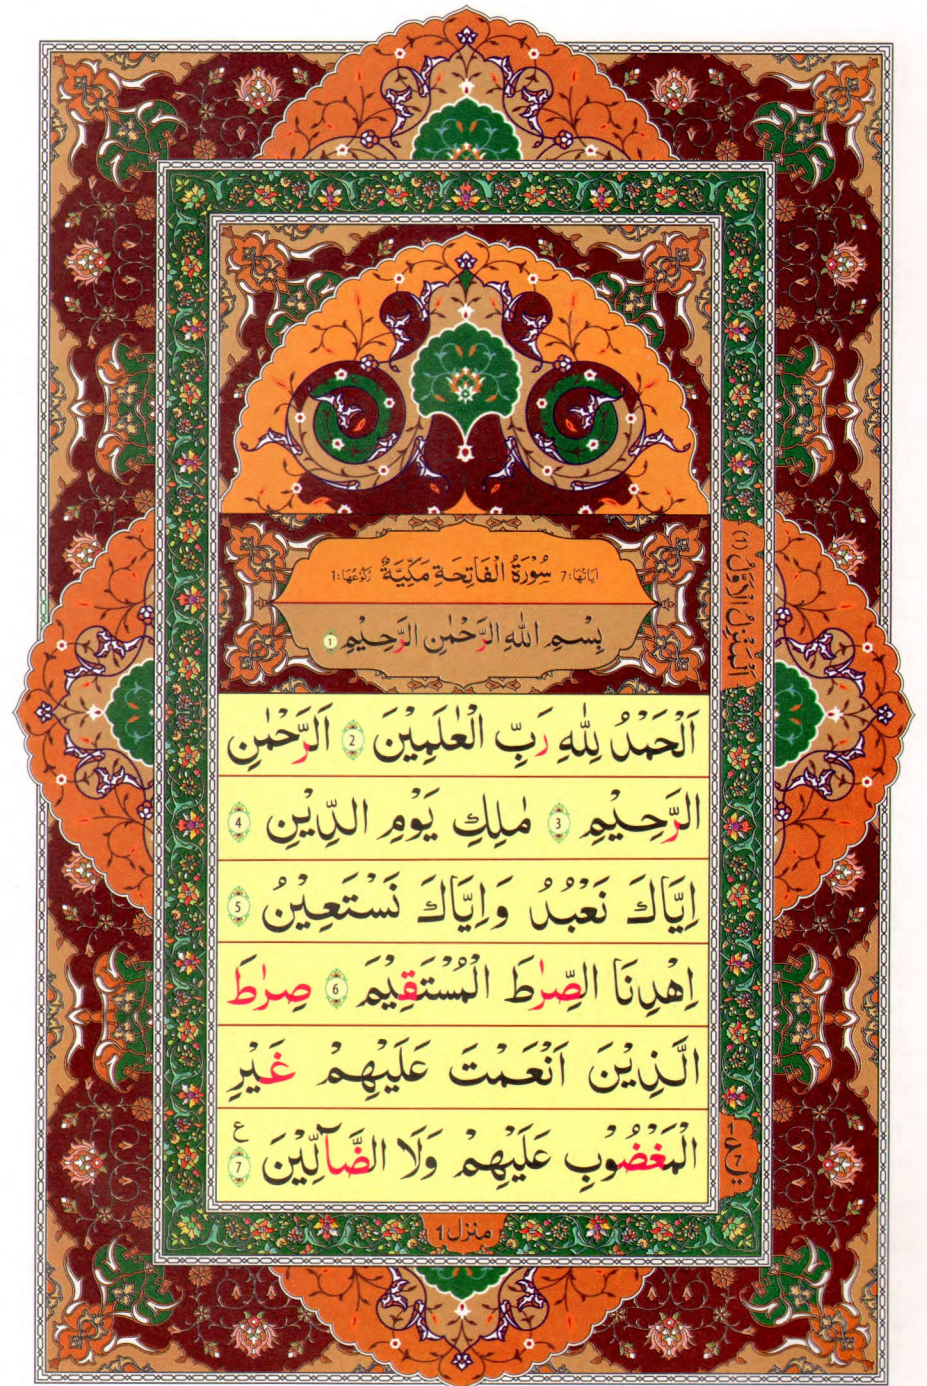 اٰيَاتُهَا:7 سُوْرَةُ الْفَاتِحَةِ مَكِّيَّةٌ رُكُوْعُهَا:1
بِسْمِ اللهِ الرَّحْمٰنِ الرَّحِيْمِ 1
اَلْحَمْدُ لِلّٰهِ رَبِّ الْعٰلَمِيْنَ 2 اَلرَّحْمٰنِ
الرَّحِيْمِ 3 مٰلِكِ يَوْمِ الدِّيْنِ 4
اِيَّاكَ نَعْبُدُ وَاِيَّاكَ نَسْتَعِيْنُ 5
اِهْدِنَا الصِّرٰطَ الْمُسْتَقِيْمَ 6 صِرٰطَ
الَّذِيْنَ اَنْعَمْتَ عَلَيْهِمْ غَيْرِ
الْمَغْضُوْبِ عَلَيْهِمْ وَلَا الضَّآلِّيْنَ 7 ع
اَلْمَنْزِلُ الْاَوَّلُ (1)
منزل 1